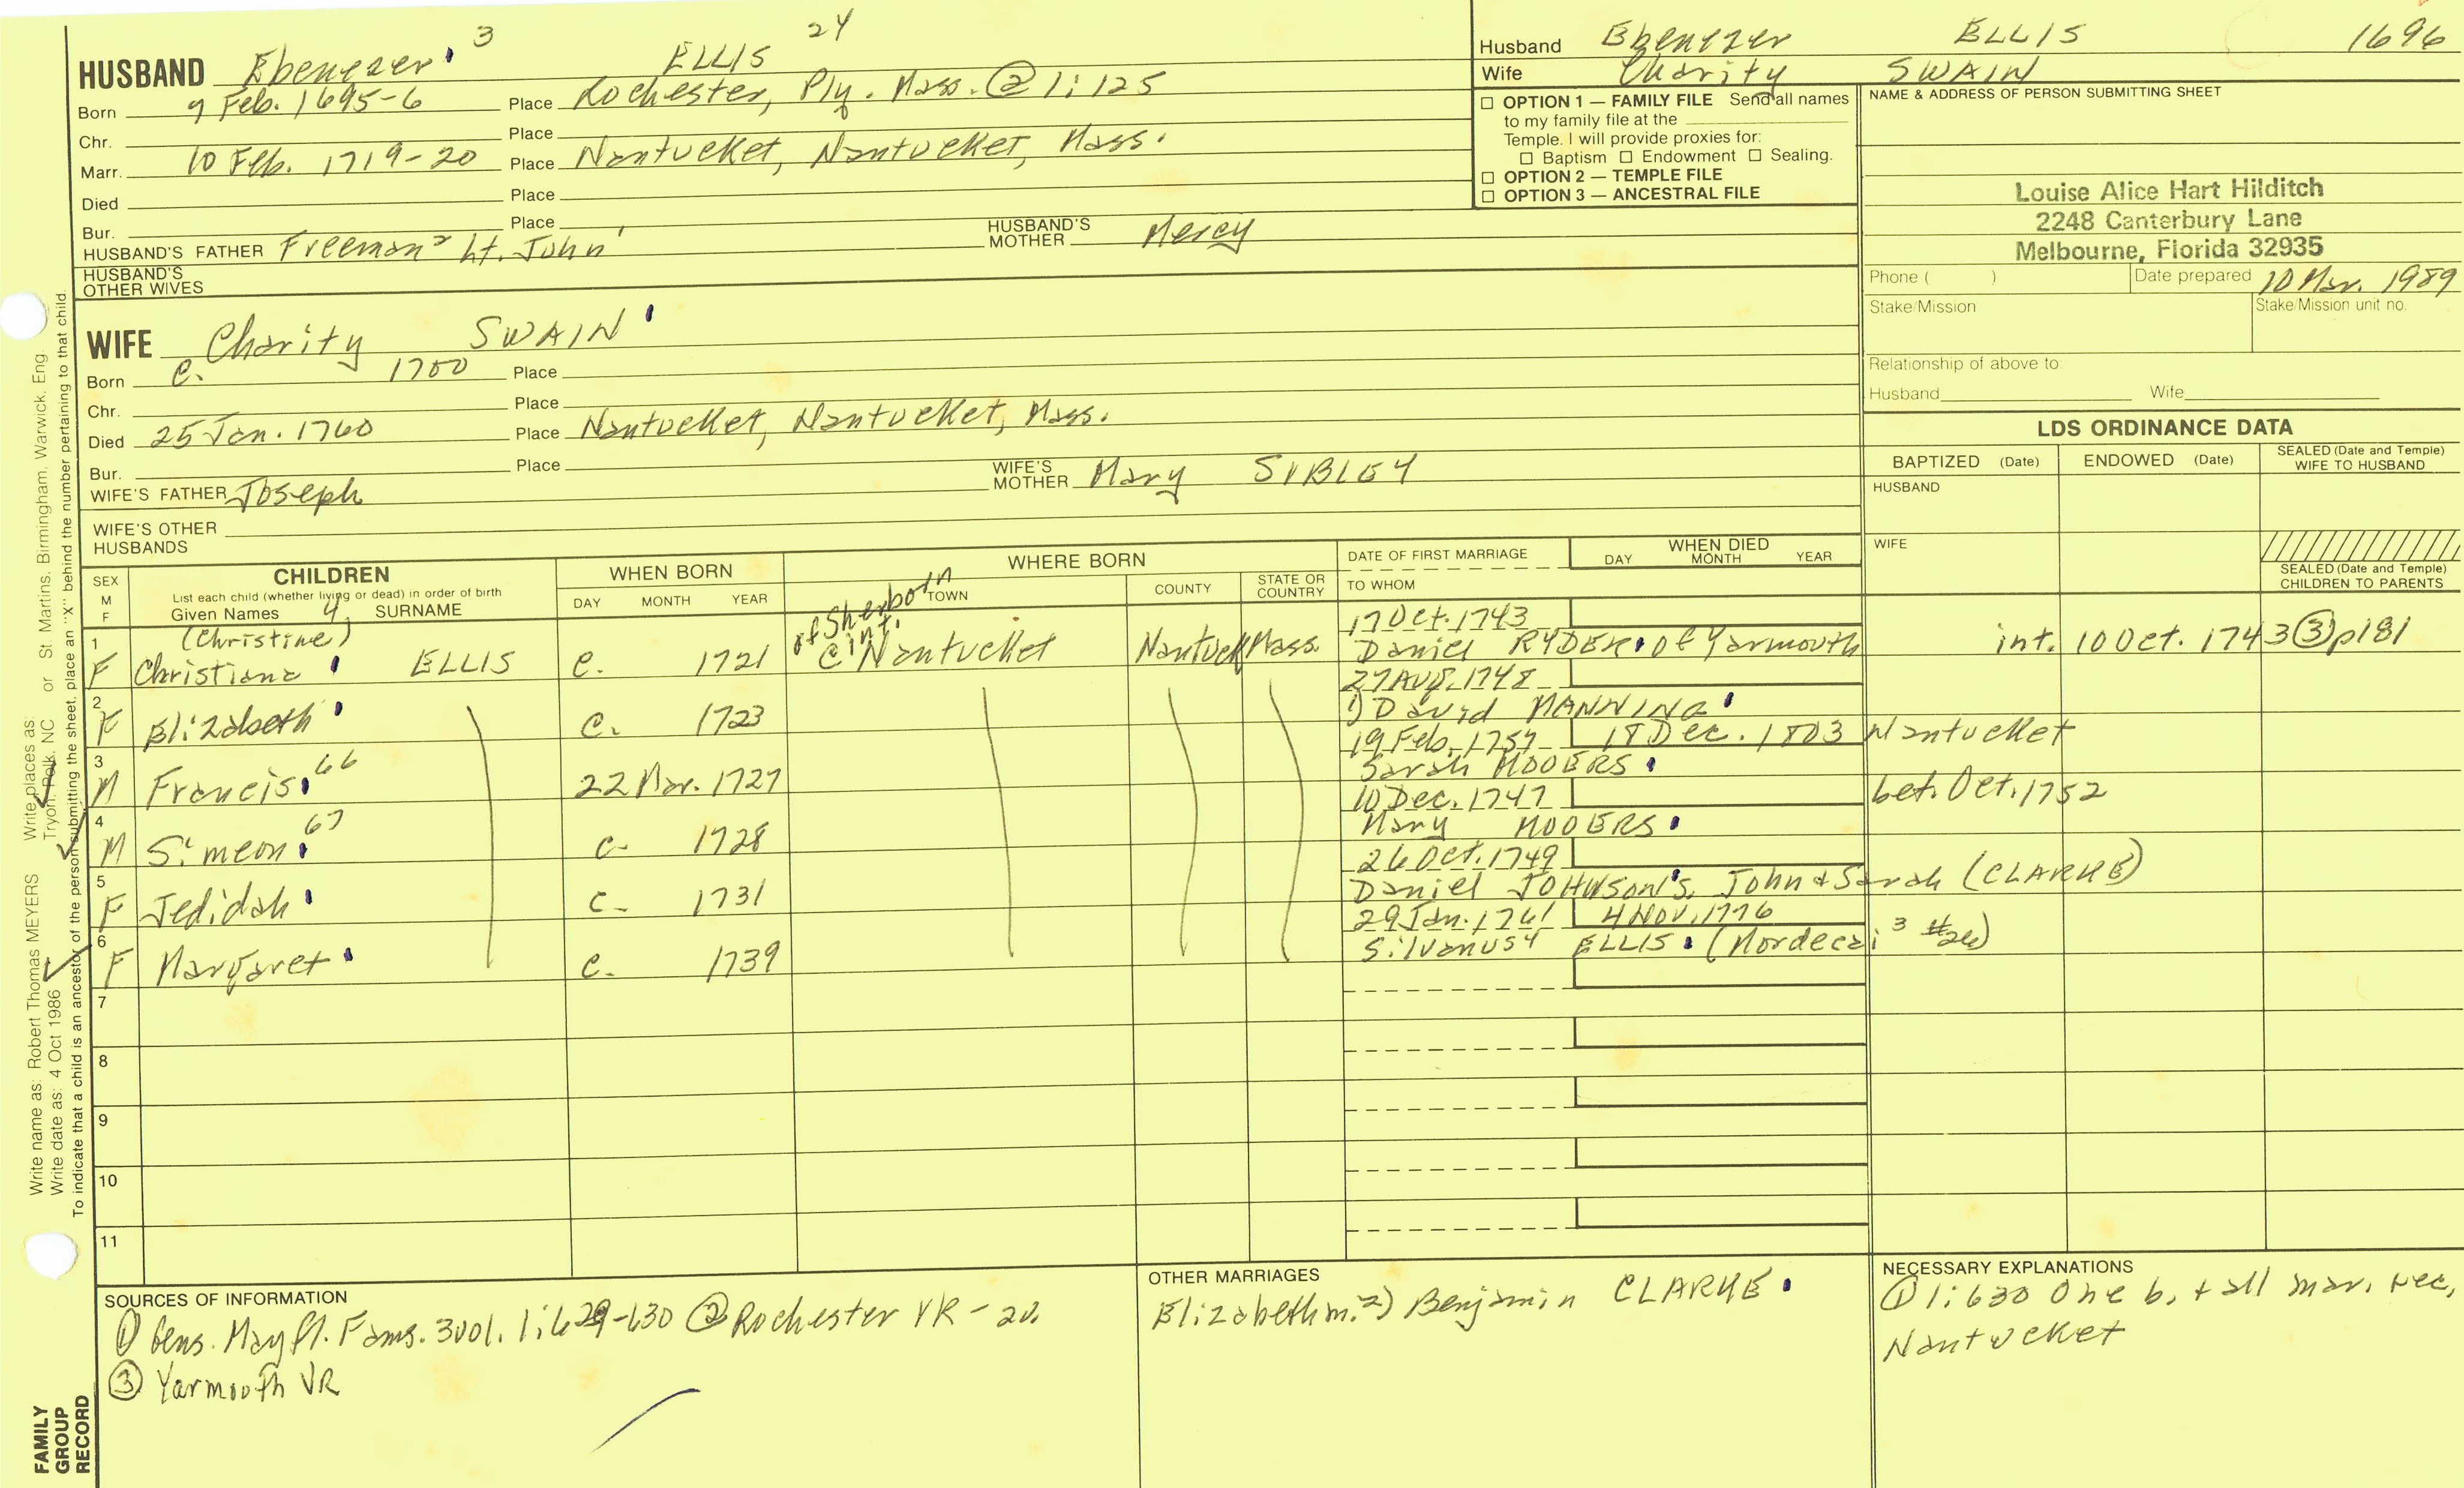 3 24
HUSBAND Ebenezer ELLIS
Born 9 Feb. 1695-6 Place Rochester, Ply. Mass. @ 1:125
Chr. Place
Marr. 10 Feb. 1719-20 Place Nantucket, Nantucket, Mass.
Died Place
Bur. Place
HUSBAND'S FATHER Freeman² Lt. John' HUSBAND'S MOTHER Mercy
HUSBAND'S OTHER WIVES
WIFE Charity SWAIN
Born c. 1700 Place
Chr. Place
Died 25 Jan. 1760 Place Nantucket, Nantucket, Mass.
Bur. Place
WIFE'S FATHER Joseph WIFE'S MOTHER Mary SIBLEY
WIFE'S OTHER HUSBANDS
Husband Ebenezer ELLIS 1696
Wife Charity SWAIN
☐ OPTION 1 — FAMILY FILE Send all names
to my family file at the
Temple. I will provide proxies for:
☐ Baptism ☐ Endowment ☐ Sealing.
☐ OPTION 2 — TEMPLE FILE
☐ OPTION 3 — ANCESTRAL FILE
NAME & ADDRESS OF PERSON SUBMITTING SHEET
Louise Alice Hart Hilditch
2248 Canterbury Lane
Melbourne, Florida 32935
Phone ( ) Date prepared 10 Mar. 1989
Stake/Mission Stake/Mission unit no.
Relationship of above to:
Husband Wife
LDS ORDINANCE DATA
BAPTIZED (Date) ENDOWED (Date) SEALED (Date and Temple) WIFE TO HUSBAND
HUSBAND
WIFE
SEALED (Date and Temple) CHILDREN TO PARENTS
SEX M F
CHILDREN
List each child (whether living or dead) in order of birth
Given Names 4 SURNAME
WHEN BORN
DAY MONTH YEAR
WHERE BORN
TOWN COUNTY STATE OR COUNTRY
DATE OF FIRST MARRIAGE
TO WHOM
WHEN DIED
DAY MONTH YEAR
of Sherborn
int.
1 (Christine) 17 Oct. 1743
F Christiana ELLIS c. 1721 Nantucket Nantuck Mass. Daniel RYDER of Yarmouth int. 10 Oct. 1743 ③ p181
2 27 Aug. 1748
F Elizabeth c. 1723 1) David MANNING
3 19 Feb. 1757 18 Dec. 1803 Nantucket
M Francis 66 22 Mar. 1727 Sarah MOOERS
4 10 Dec. 1747 bet. Oct. 1752
M Simeon 67 c. 1728 Mary MOOERS
5 26 Oct. 1749
F Jedidah c. 1731 Daniel JOHNSON s. John & Sarah (CLARKE)
6 29 Jan. 1761 4 Nov. 1776
F Margaret c. 1739 Silvanus 4 ELLIS (Mordecai 3 #26)
7
8
9
10
11
SOURCES OF INFORMATION
① Gens. Mayfl. Fams. 3 vol. 1:629-630 ② Rochester VR - 2v.
③ Yarmouth VR
OTHER MARRIAGES
Elizabeth m. 2) Benjamin CLARKE
NECESSARY EXPLANATIONS
① 1:630 One b. + all mar. rec.
Nantucket
FAMILY
GROUP
RECORD
Write name as: Robert Thomas MEYERS Write places as: St. Martins, Birmingham, Warwick, Eng.
Write date as: 4 Oct 1986 Tryon, Polk, NC or
To indicate that a child is an ancestor of the person submitting the sheet, place an "X" behind the number pertaining to that child.